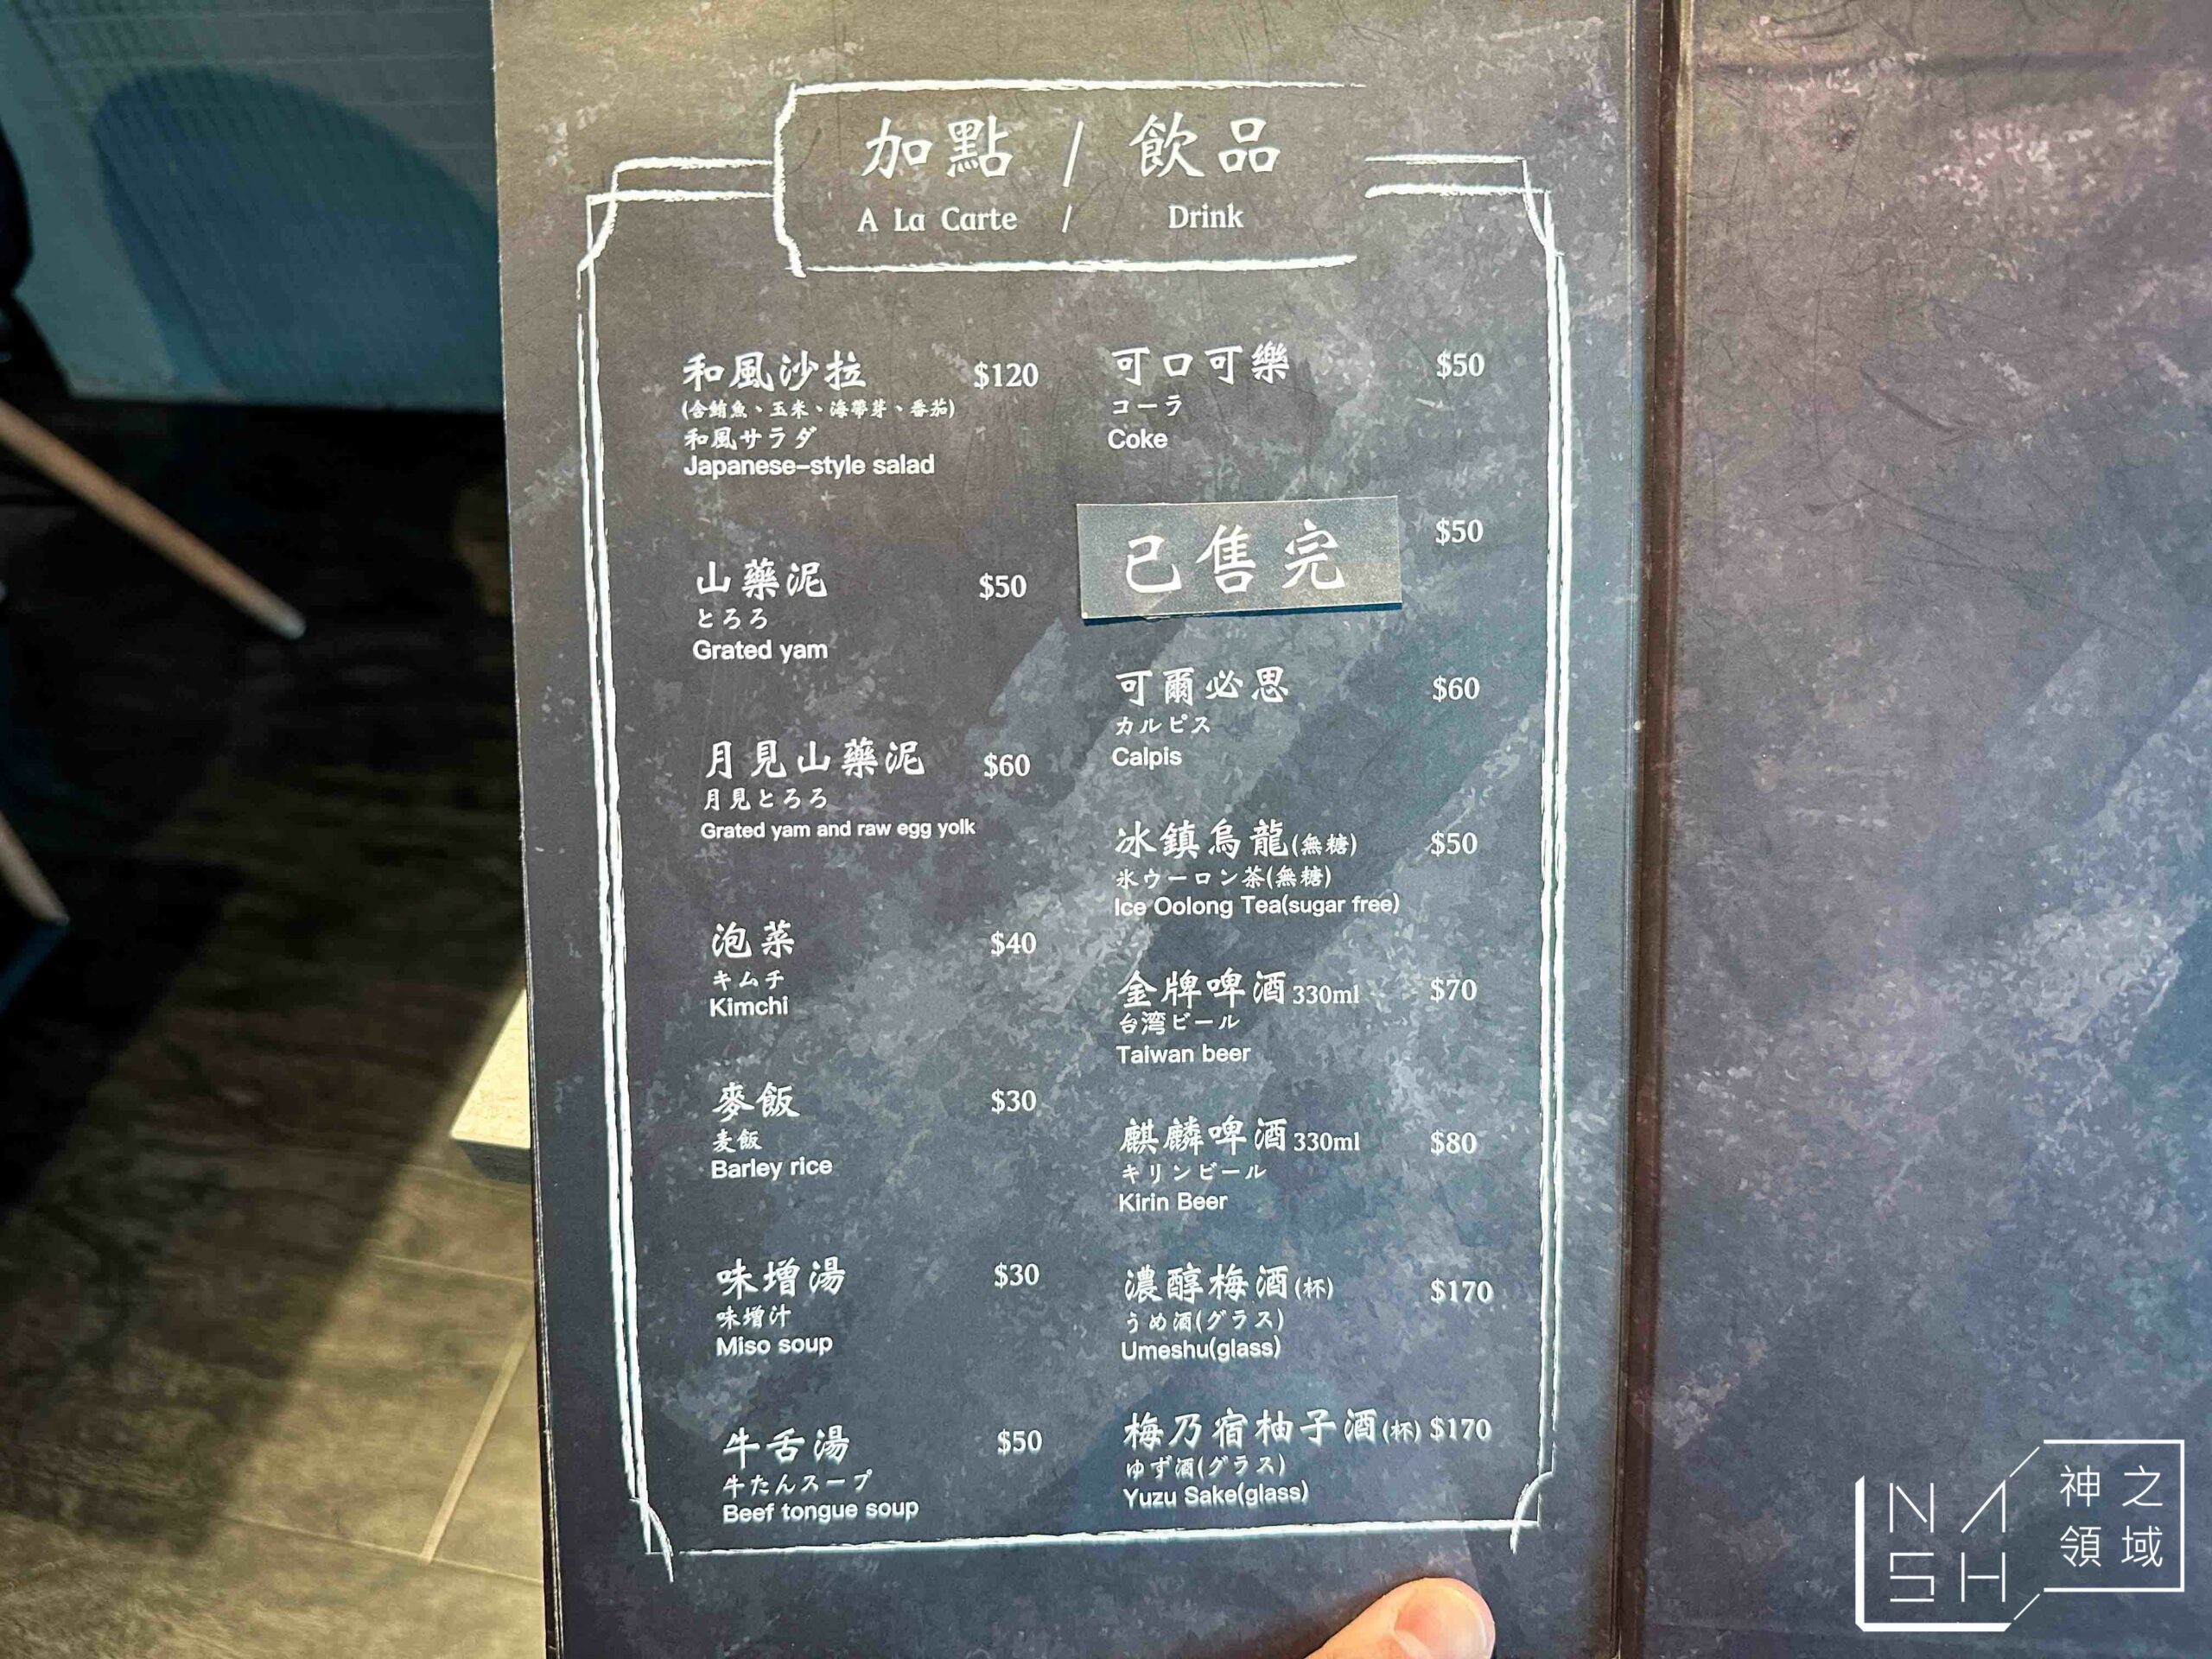 加點 / 飲品
A La Carte / Drink
和風沙拉 $120
(含鮪魚、玉米、海帶芽、番茄)
和風サラダ
Japanese-style salad
山藥泥 $50
とろろ
Grated yam
月見山藥泥 $60
月見とろろ
Grated yam and raw egg yolk
泡菜 $40
キムチ
Kimchi
麥飯 $30
麦飯
Barley rice
味增湯 $30
味増汁
Miso soup
牛舌湯 $50
牛たんスープ
Beef tongue soup
可口可樂 $50
コーラ
Coke
已售完 $50
可爾必思 $60
カルピス
Calpis
冰鎮烏龍(無糖) $50
氷ウーロン茶(無糖)
Ice Oolong Tea(sugar free)
金牌啤酒 330ml $70
台湾ビール
Taiwan beer
麒麟啤酒 330ml $80
キリンビール
Kirin Beer
濃醇梅酒(杯) $170
うめ酒(グラス)
Umeshu(glass)
梅乃宿柚子酒(杯) $170
ゆず酒(グラス)
Yuzu Sake(glass)
NASH
神之
領域